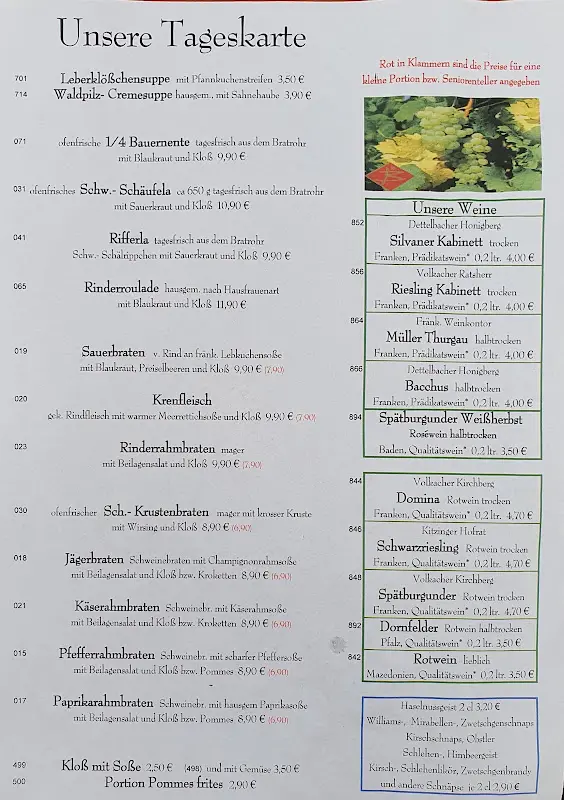 Unsere Tageskarte
701 Leberklößchensuppe mit Pfannkuchenstreifen 3,50 €
714 Waldpilz- Cremesuppe hausgem., mit Sahnehaube 3,90 €
071 ofenfrische 1/4 Bauernente tagesfrisch aus dem Bratrohr
mit Blaukraut und Kloß 9,90 €
031 ofenfrisches Schw.- Schäufela ca 650 g tagesfrisch aus dem Bratrohr
mit Sauerkraut und Kloß 10,90 €
041 Rifferla tagesfrisch aus dem Bratrohr
Schw.- Schälrippchen mit Sauerkraut und Kloß 9,90 €
065 Rinderroulade hausgem. nach Hausfrauenart
mit Blaukraut und Kloß 11,90 €
019 Sauerbraten v. Rind an fränk. Lebkuchensoße
mit Blaukraut, Preiselbeeren und Kloß 9,90 € (7,90)
020 Krenfleisch
gek. Rindfleisch mit warmer Meerrettichsoße und Kloß 9,90 € (7,90)
023 Rinderrahmbraten mager
mit Beilagensalat und Kloß 9,90 € (7,90)
030 ofenfrischer Sch.- Krustenbraten mager mit krosser Kruste
mit Wirsing und Kloß 8,90 € (6,90)
018 Jägerbraten Schweinebraten mit Champignonrahmsoße
mit Beilagensalat und Kloß bzw. Kroketten 8,90 € (6,90)
021 Käserahmbraten Schweinebr. mit Käserahmsoße
mit Beilagensalat und Kloß bzw. Kroketten 8,90 € (6,90)
015 Pfefferrahmbraten Schweinebr. mit scharfer Pfeffersoße
mit Beilagensalat und Kloß bzw. Pommes 8,90 € (6,90)
017 Paprikarahmbraten Schweinebr. mit hausgem Paprikasoße
mit Beilagensalat und Kloß bzw. Pommes 8,90 € (6,90)
499 Kloß mit Soße 2,50 € (498) und mit Gemüse 3,50 €
500 Portion Pommes frites 2,90 €
Rot in Klammern sind die Preise für eine
kleine Portion bzw. Seniorenteller angegeben
Unsere Weine
852 Dettelbacher Honigberg
Silvaner Kabinett trocken
Franken, Prädikatswein* 0,2 ltr. 4,00 €
856 Volkacher Ratsherr
Riesling Kabinett trocken
Franken, Prädikatswein* 0,2 ltr. 4,00 €
864 Fränk. Weinkontor
Müller Thurgau halbtrocken
Franken, Prädikatswein* 0,2 ltr. 4,00 €
866 Dettelbacher Honigberg
Bacchus halbtrocken
Franken, Prädikatswein* 0,2 ltr. 4,00 €
894 Spätburgunder Weißherbst
Roséwein halbtrocken
Baden, Qualitätswein* 0,2 ltr. 3,50 €
844 Volkacher Kirchberg
Domina Rotwein trocken
Franken, Qualitätswein* 0,2 ltr. 4,70 €
846 Kitzinger Hofrat
Schwarzriesling Rotwein trocken
Franken, Qualitätswein* 0,2 ltr. 4,70 €
848 Volkacher Kirchberg
Spätburgunder Rotwein trocken
Franken, Qualitätswein* 0,2 ltr. 4,70 €
892 Dornfelder Rotwein halbtrocken
Pfalz, Qualitätswein* 0,2 ltr. 3,50 €
842 Rotwein lieblich
Mazedonien, Qualitätswein* 0,2 ltr. 3,50 €
Haselnussgeist 2 cl 3,20 €
Williams-, Mirabellen-, Zwetschgenschnaps
Kirschschnaps, Obstler
Schlehen-, Himbeergeist
Kirsch-, Schlehenlikör, Zwetschgenbrandy
und andere Schnäpse je 2 cl 2,90 €